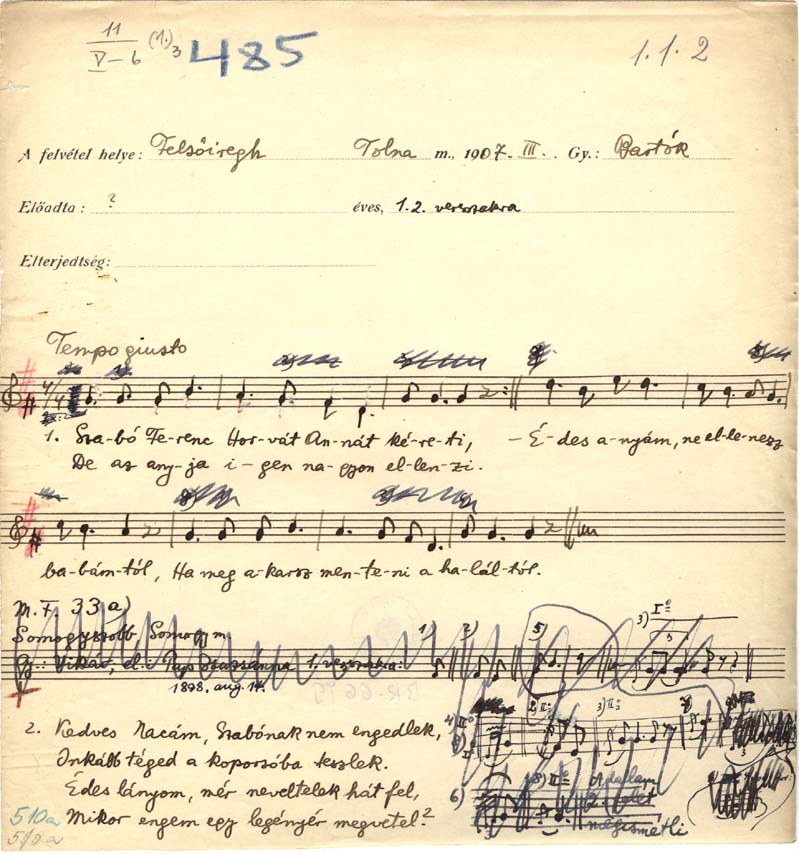 11
V-6 (1.)3 485 1.1.2
A felvétel helye: Felsőiregh Tolna m., 1907. III. Gy.: Bartók
Előadta: ? éves, 1.2. versszakra
Elterjedtség:
Tempo giusto
4/4
1. Sza-bó Fe-renc Hor-vát An-nát ké-re-ti, – É-des a-nyám, ne el-le-nezz
De az any-ja i-gen na-gyon el-len-zi.
ba-bám-tól, Ha meg a-karsz men-te-ni a ha-lál-tól.
M.F. 33a)
Somogyszobb Somogy m.
Gy.: Vikár, el.: Zsuzsánna 1. versszakra: 1) 2) 5) 3) I°
1898. aug. 14.
2. Kedves Nacám, Szabónak nem engedlek,
Inkább téged a koporsóba teszlek.
Édes lányom, mér neveltelek hát fel,
Mikor engem egy legényér megvetel?
2) II° 3) II°
6) II° A dallam
megismétli
510a